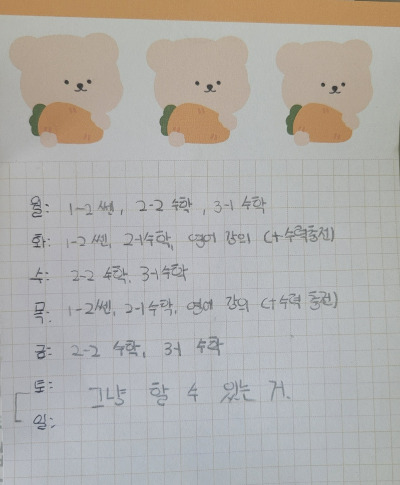 월: 1-2 쎈, 2-2 수학, 3-1 수학
화: 1-2 쎈, 2-1 수학, 영어 강의 (+수력충전)
수: 2-2 수학, 3-1 수학
목: 1-2 쎈, 2-1 수학, 영어 강의 (+수력 충전)
금: 2-2 수학, 3-1 수학
토:
그냥 할 수 있는 거.
일: